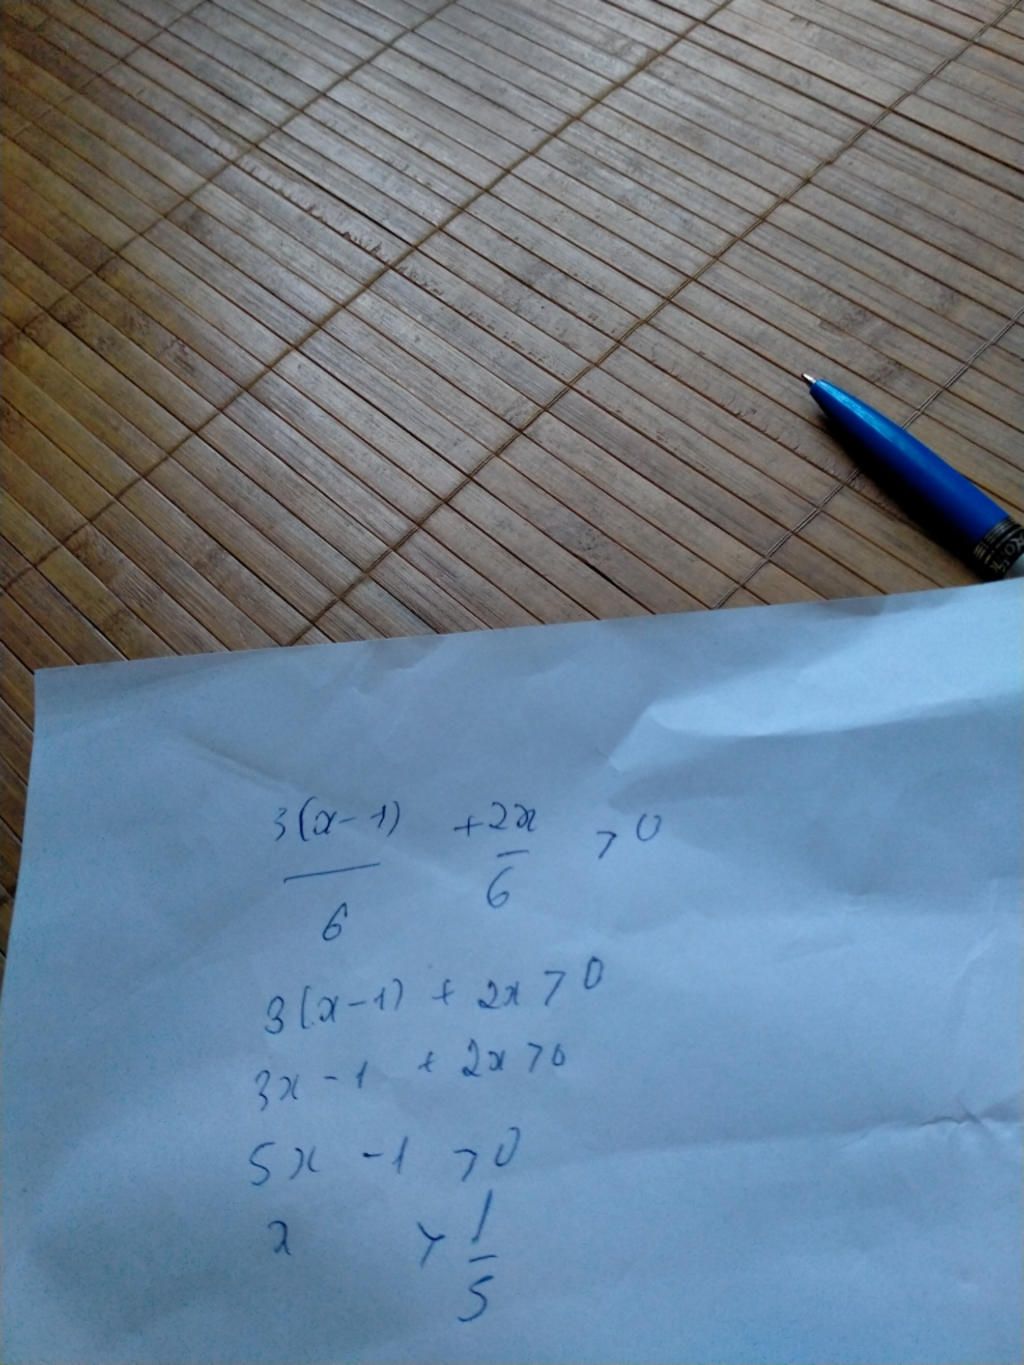 3(x-1) +2x > 0
6 6
3(x-1) + 2x > 0
3x - 1 + 2x > 0
5x - 1 > 0
x > 1
5